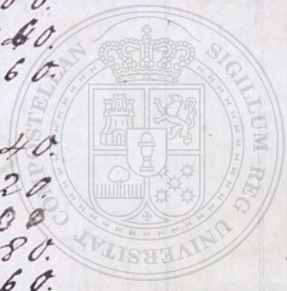 0 0.
60.
60.
40.
20.
00
80.
60.
SIGILLUM REG UNIVERSITAT COMPOSTELLAN